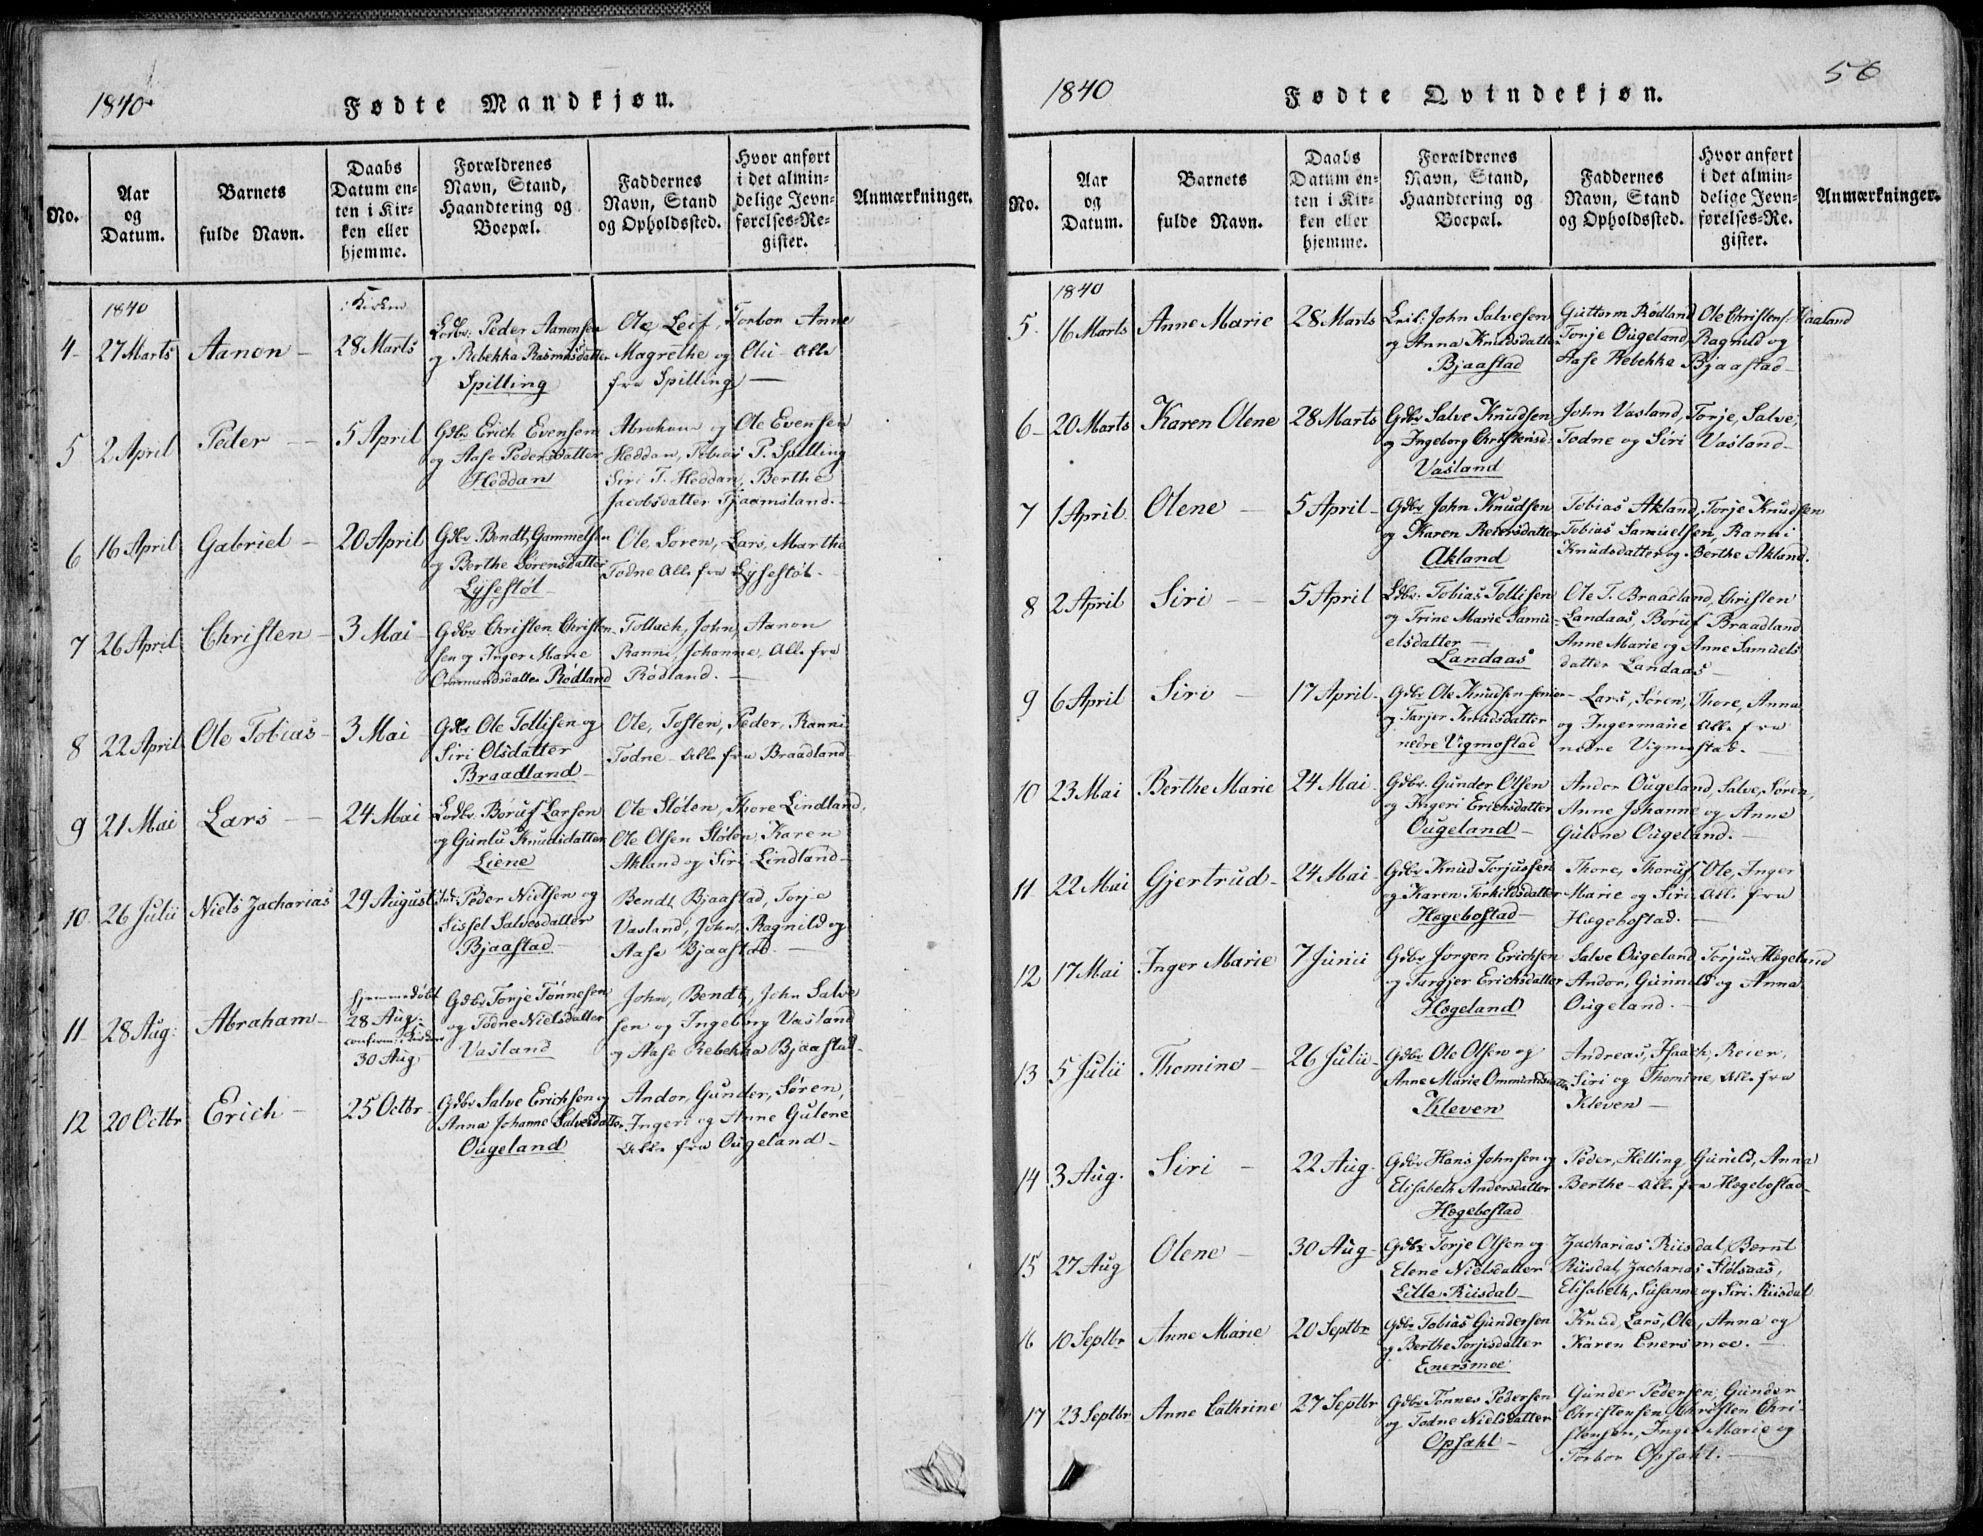 1840
Fødte Mandkjøn.
No.
Aar
og
Datum.
Barnets
fulde Navn.
Daabs
Datum en-
ten i Kir-
ken eller
hjemme.
Forældrenes
Navn, Stand,
Haandtering og
Boepæl.
Faddernes
Navn, Stand
og Opholdssted.
Hvor anført
i det almin-
delige Jevn-
førelses-Re-
gister.
Anmærkninger.
1840
Kirken
4
27 Marts
Aanon
28 Marts
Peder Aanonsen
og Rebekka Rasmusdatter
Spilling
Ole, Leif, Torbor Anne
Magrethe og Alle
fra Spilling
5
2 April
Peder
5 April
Gdbr Erich Evensen
og Aase Pedersdatter
Heddan
Abraham og Ole Evensen
Heddan, Tobias P. Spilling
Siri T. Heddan, Berthe
Jacobsdatter Tjaamsland.
6
16 April
Gabriel
20 April
Gdbr Bendt Gammelsen
og Berthe Sørensdatter
Lysestøl
Ole, Søren, Lars, Marthe
Todne Alle fra Lysestøl
7
26 April
Christen
3 Mai
Gdbr Christen Christen-
sen og Inger Marie
Ommundsdatter Rødland
Tollach, John, Aanon
Ranni, Johanne, Alle fra
Rødland.
8
22 April
Ole Tobias
3 Mai
Gdbr Ole Tollisen og
Siri Olsdatter
Braadland
Ole, Tosten, Peder, Ranni
Todne Alle fra Braadland
9
21 Mai
Lars
24 Mai
Børuf Larsen
og Gunlu Knudsdatter
Liene
Ole Stølen, Thore Lindland,
Ole Olsen Stølen Karen
Akland og Siri Lindland
10
26 Julii
Niels Zacharias
29 August
Peder Nielsen og
Sissel Salvesdatter
Bjaastad
Bendt Bjaastad, Torje
Vasland, John, Ragnild og
Aase Bjaastad.
11
28 Aug:
Abraham
hjemmedøbt
28 Aug.
confirm: i Kirken
30 Aug
Gdbr Torje Tønnesen
og Todne Nielsdatter
Vasland
John, Bendt, John Salve
sen og Ingeborg Vasland
og Aase Rebekka Bjaastad.
12
20 Octbr
Erich
25 Octbr
Gdbr Salve Erichsen og
Anna Johanne Salvesdatter
Ougeland
Andor, Gunder, Søren,
Ingeri og Anne Gulene
Alle fra Ougeland
1840
56
Fødte Qvindekjøn.
No.
Aar
og
Datum.
Barnets
fulde Navn.
Daabs
Datum en-
ten i Kir-
ken eller
hjemme.
Forældrenes
Navn, Stand,
Haandtering og
Boepæl.
Faddernes
Navn, Stand
og Opholdssted.
Hvor anført
i det almin-
delige Jevn-
førelses-Re-
gister.
Anmærkninger.
1840
5
16 Marts
Anne Marie
28 Marts
John Salvesen
og Anna Knudsdatter
Bjaastad
Guttorm Rødland Ole Christens: Vaaland
Torje Ougeland, Ragnild og
Aase Rebekka Bjaastad
6
20 Marts
Karen Olene
28 Marts
Gdbr Salve Knudsen
og Ingeborg Christensd:
Vasland
John Vasland, Torje, Salve,
Todne og Siri Vasland
7
1 April
Olene
5 April
Gdbr John Knudsen
og Karen Reiersdatter
Akland
Tobias Akland, Torje Knudsen
Tobias Samuelsen, Ranni
Knudsdatter og Berthe Akland.
8
2 April
Siri
5 April
Ldbr. Tobias Tollisen
og Trine Marie Samu-
elsdatter
Landaas
Ole T. Braadland, Christen
Landaas, Børuf Braadland
Anne Marie og Anne Samuels
datter Landaas
9
6 April
Siri
17 April
Gdbr Ole Knudsen senior
og Tarjer Knudsdatter
nedre Vigmostad
Lars, Søren, Thore, Anna
og Ingermarie Alle fra
nedre Vigmostad.
10
23 Mai
Berthe Marie
24 Mai
Gdbr. Gunder Olsen
og Ingeri Erichsdatter
Ougeland
Andor Ougeland, Salve, Søren,
Anne Johanne og Anne
Gulene Ougeland.
11
22 Mai
Gjertrud
24 Mai
Gdbr Knud Torjussen
og Karen Torkildsdatter
Hægebostad
Thore, Thoruf, Ole, Inger
Marie og Siri Alle fra
Hægebostad.
12
17 Mai
Inger Marie
7 Junii
Gdbr Jørgen Erichsen
og Targjer Erichsdatter
Hægeland
Salve Ougeland Torjus Hægeland
Andor, Gunnild og Anna
Ougeland.
13
5 Julii
Thomine
26 Julii
Gdbr Ole Olsen og
Anne Marie Ommundsdatter
Kleven
Andreas, Isaach, Reier,
Siri og Thomine, Alle fra
Kleven
14
3 Aug.
Siri
22 Aug.
Gdbr Hans Johnsen og
Elisabeth Andersdatter
Hægebostad
Peder, Helling, Gunild, Anna
Berthe Alle fra Hægebostad
15
27 Aug
Olene
30 Aug
Gdbr Torje Olsen og
Elene Nielsdatter
Lille Riisdal
Zacharias Riisdal, Bernt
Riisdal, Zacharias Stølsaas,
Elisabeth, Susanne og Siri Riisdal
16
10 Septbr
Anne Marie
20 Septbr
Gdbr Tobias Gundersen
og Berthe Torjesdatter
Enersmoe
Knud, Lars, Ole, Anna og
Karen Enersmoe.
17
23 Septbr
Anne Cathrine
27 Septbr
Gdbr Tønnes Pedersen
og Todne Nielsdatter
Opsahl
Gunder Pedersen, Gunder
Christensen, Christen Chri-
stensen, Inger Marie og
Torbor Opsahl.